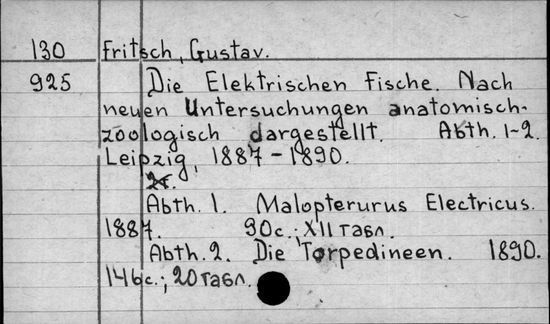 130 Fritsch, Gustav.
925 Die Elektrischen Fische. Nach
neuen Untersuchungen anatomisch-
zoologisch dargestellt. Abth. 1-2.
Leipzig, 1887-1890.
2т.
Abth. 1. Malopterurus Electricus.
1887. 90с.; XII табл.
Abth. 2. Die Torpedineen. 1890.
146с.; 20 табл.